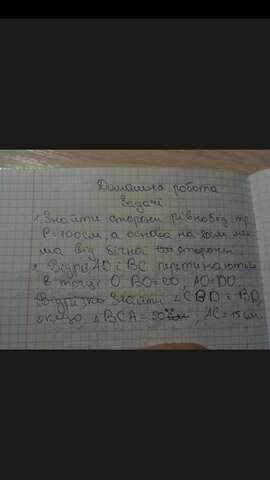 Домашна робота
Задачі
1. Знайти сторони рівнобед. тр.
P=100см, а основа на
ма від бічної сторони
2. Відрі AD і BC перетинаються
в точці O BO=CO, AO=DO.
Знайти ∠CBD і BD,
якщо ∠BCA=50°, AC=15см.